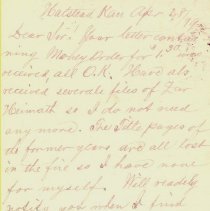 Halstead Kan Apr 28
Dear Sir: Your letter contai-
ning Money Order for $1.50 was
received, all O.K. Have also
received severale files of Zur
Heimath so I do not need
any more. The Title pages of
its former years and all lost
in the fire so I have none
for myself. Will readily
notify you when I find